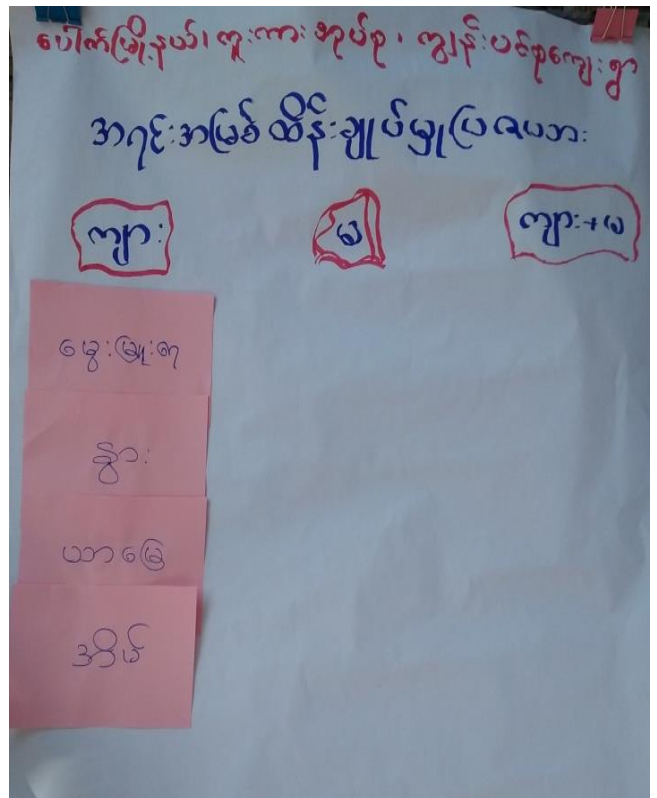 ပေါက်မြို့နယ်၊ ကူးကားအုပ်စု၊ ကျွန်းပင်စုကျေးရွာ
အရင်းအမြစ်ထိန်းချုပ်မှုပြဇယား
ကျား မ ကျား+မ
မွေးမြူရေး
နွား
ယာမြေ
အိမ်